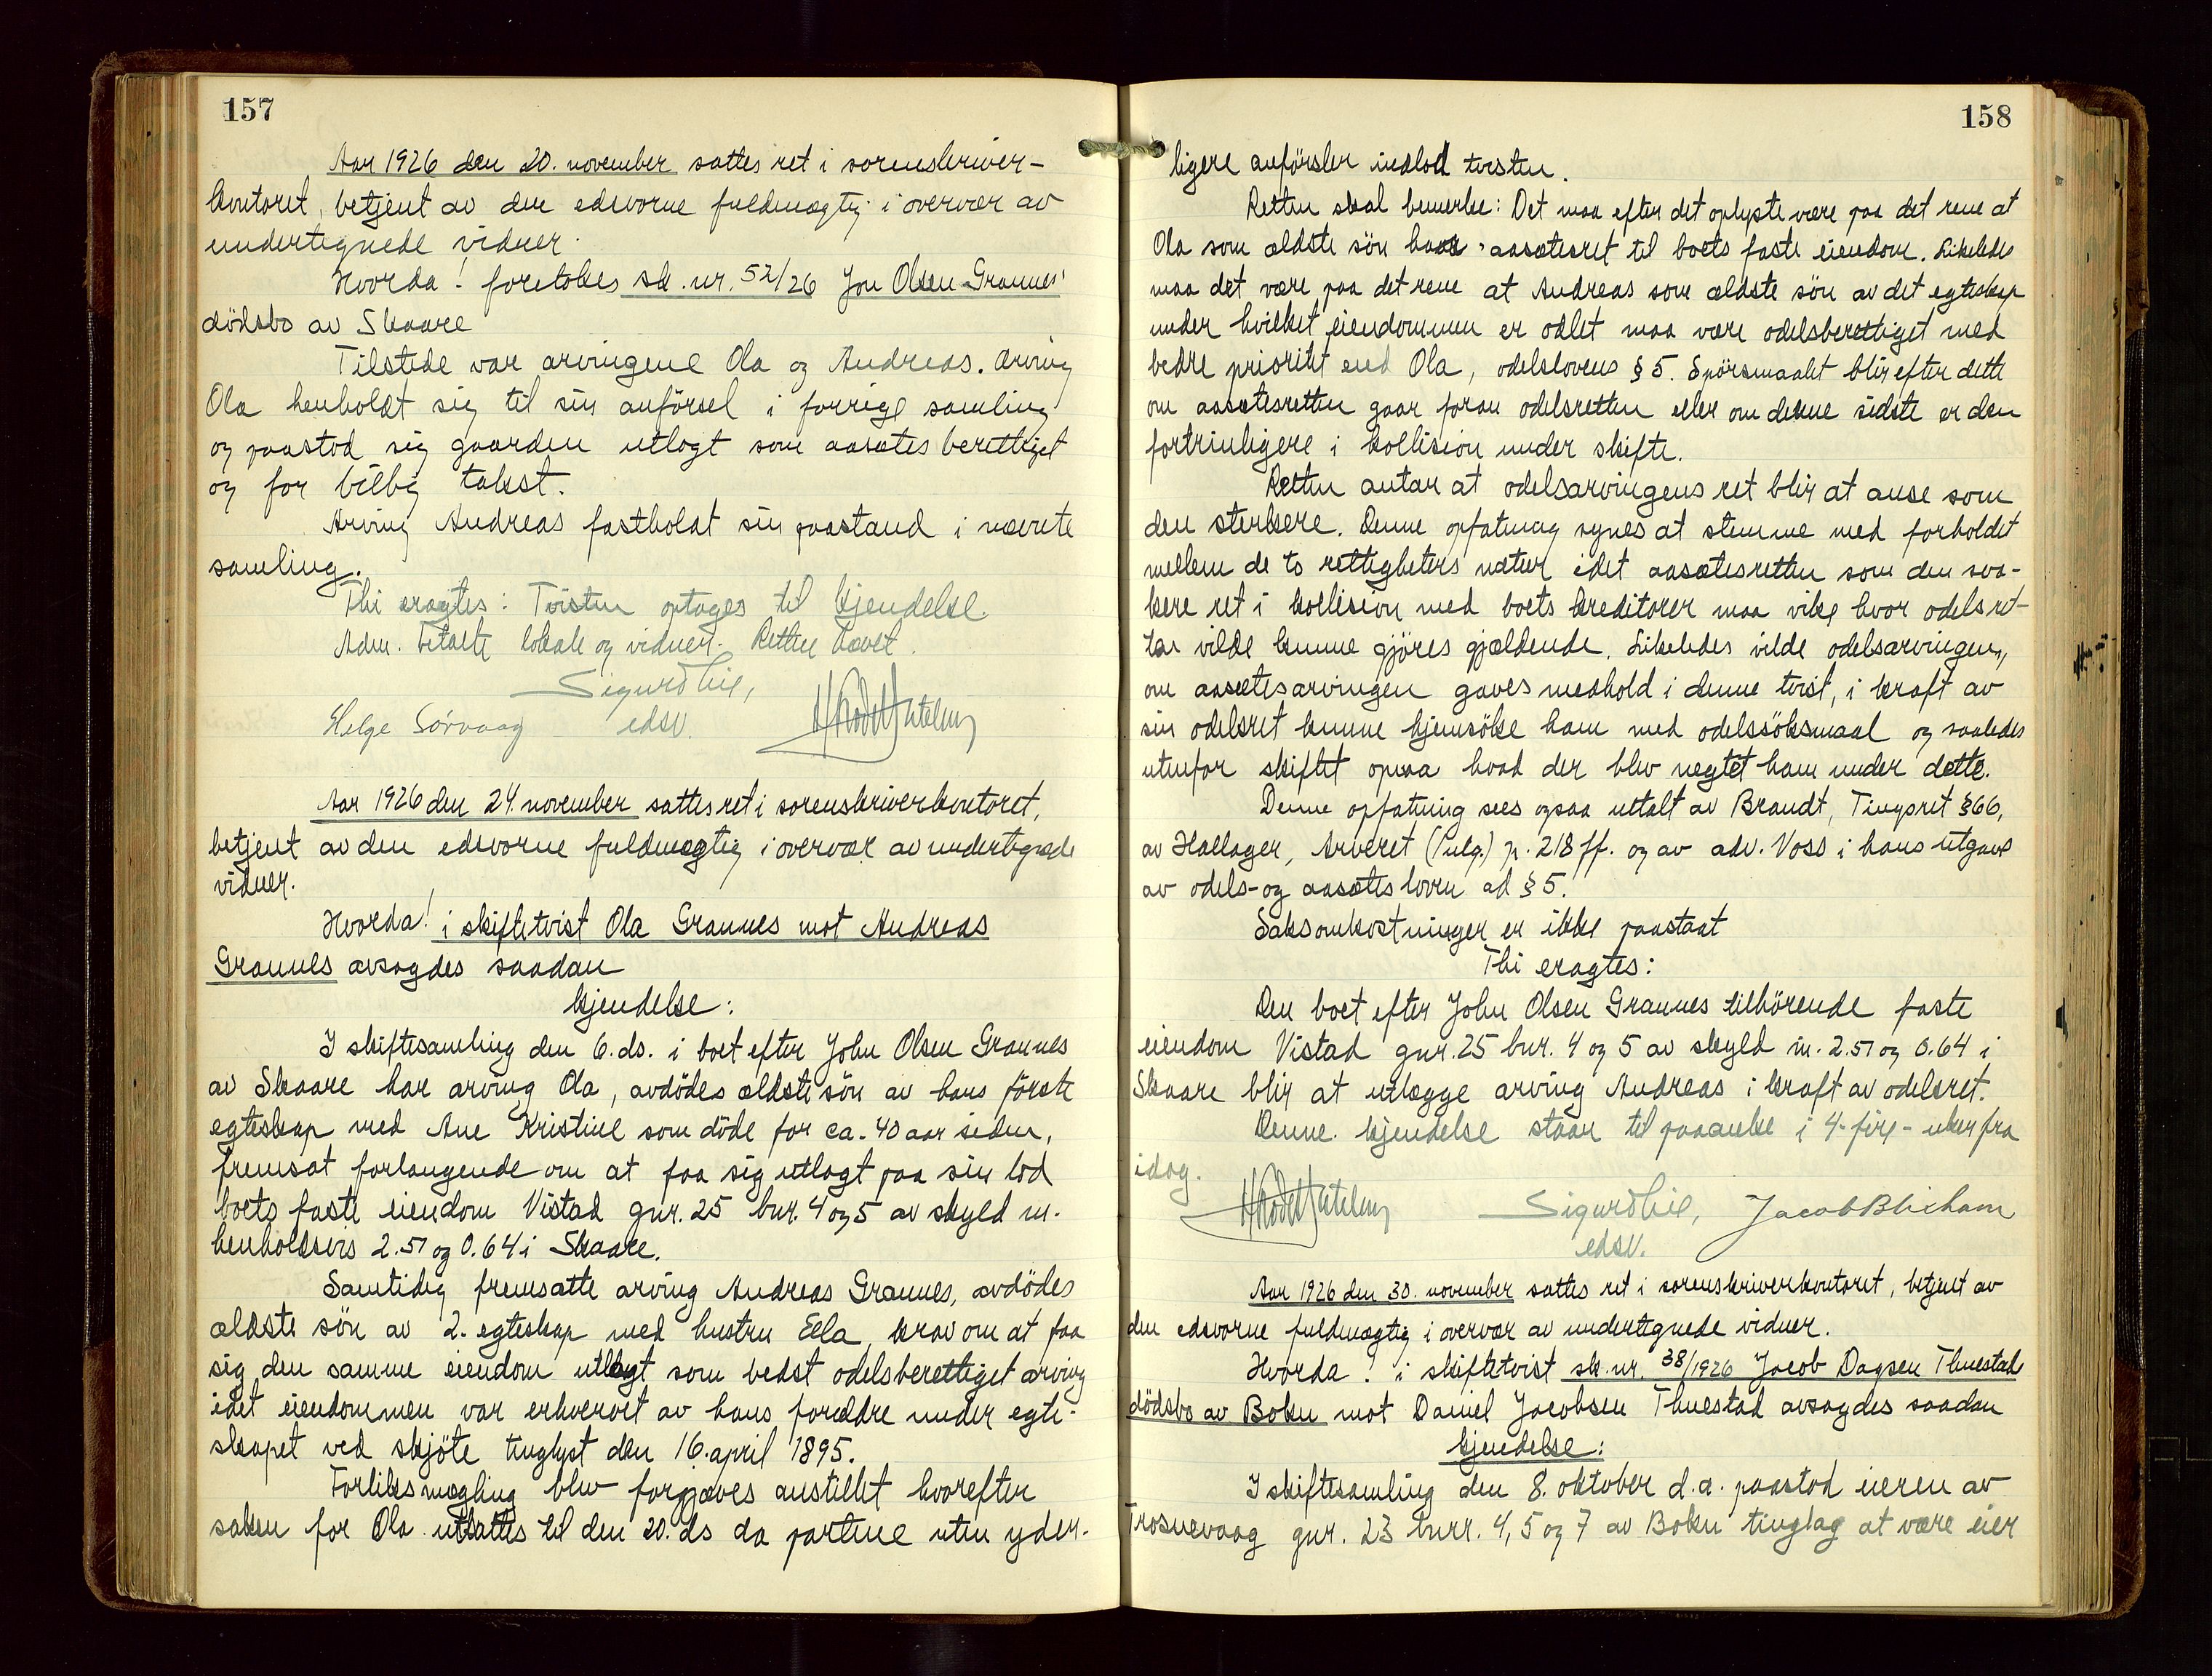 157
Aar 1926 den 20. november sattes ret i sorenskriver-
kontoret, betjent av den edsvorne fuldmægtig i overvær av
undertegnede vidner.
Hvorda! foretokes sk. nr. 52/26 Jon Olsen Grannes'
dödsbo av Skaare
Tilstede var arvingene Ola og Andreas. Arving
Ola henholdt sig til sin anförsel i forrige samling
og paastod sig gaarden utlagt som aasætesberettiget
og for billig takst.
Arving Andreas fastholdt sin paastand i nævnte
samling.
Thi eragtes: Tvisten optages til kjendelse.
Adm. betalte lokale og vidner. Retten hævet.
Sigurd Lie,
Helge Sörvaag edsv.
Aar 1926 den 24. november sattes ret i sorenskriverkontoret,
betjent av den edsvorne fuldmægtig i overvær av undertegnede
vidner.
Hvorda! i skiftetvist Ola Grannes mot Andreas
Grannes avsagdes saadan
kjendelse:
I skiftesamling den 6. ds. i boet efter John Olsen Grannes
av Skaare har arving Ola, avdödes ældste sön av hans förste
egteskap med Ane Kristine som döde for ca. 40 aar siden,
fremsat forlangende om at faa sig utlagt paa sin lod
boets faste eiendom Vistad gnr. 25 bnr. 4 og 5 av skyld m.
henholdsvis 2.57 og 0.64 i Skaare.
Samtidig fremsatte arving Andreas Grannes, avdödes
ældste sön av 2. egteskap med hustru Ella, krav om at faa
sig den samme eiendom utlagt som bedst odelsberettiget arving
idet eiendommen var erhvervet av hans forældre under egte-
skapet ved skjöte tinglyst den 16. april 1895.
Forliksmægling blev forgjæves anstillet hvorefter
saken for Ola utsattes til den 20. ds da partene uten yder-
158
ligere anförsler indlod tvisten.
Retten skal bemerke: Det maa efter det oplyste være paa det rene at
Ola som ældste sön har aasætesret til boets faste eiendom. Likeledes
maa det være paa det rene at Andreas som ældste sön av det egteskap
under hvilket eiendommen er odlet maa være odelsberettiget med
bedre prioritet end Ola, odelslovens § 5. Spörsmaalet blir efter dette
om aasætesretten gaar foran odelsretten eller om denne sidste er den
fortrinligere i kollision under skifte.
Retten antar at odelsarvingens ret blir at anse som
den sterkere. Denne opfatning synes at stemme med forholdet
mellem de to rettigheters natur idet aasætesretten som den sva-
kere ret i kollision med boets kreditorer maa vike hvor odelsret-
ten vilde kunne gjöres gjældende. Likeledes vilde odelsarvingen,
om aasætesarvingen gaves medhold i denne tvist, i kraft av
sin odelsret kunne hjemsöke ham med odelssöksmaal og saaledes
utenfor skiftet opnaa hvad der blev negtet ham under dette.
Denne opfatning sees ogsaa uttalt av Brandt, Tingsret § 66,
av Hallager, Arveret (1 utg.) p. 218 ff. og av adv. Voss i hans utgave
av odels- og aasætesloven ad § 5.
Saksomkostninger er ikke paastaat
Thi eragtes:
Den boet efter John Olsen Grannes tilhörende faste
eiendom Vistad gnr. 25 bnr. 4 og 5 av skyld m. 2.57 og 0.64 i
Skaare blir at utlægge arving Andreas i kraft av odelsret.
Denne kjendelse staar til paaanke i 4- fire - uker fra
idag.
Sigurd Lie, Jacob Blixhavn
edsv.
Aar 1926 den 30. november sattes ret i sorenskriverkontoret, betjent av
den edsvorne fuldmægtig i overvær av undertegnede vidner.
Hvorda! i skiftetvist sk. nr. 38/1926 Jacob Dagsen Thuestads
dödsbo av Bokn mot Daniel Jacobsen Thuestad avsagdes saadan
kjendelse:
I skiftesamling den 8. oktober d.a. paastod eieren av
Trosnevaag gnr. 23 bnr. 4, 5 og 7 av Bokn tinglag at være eier